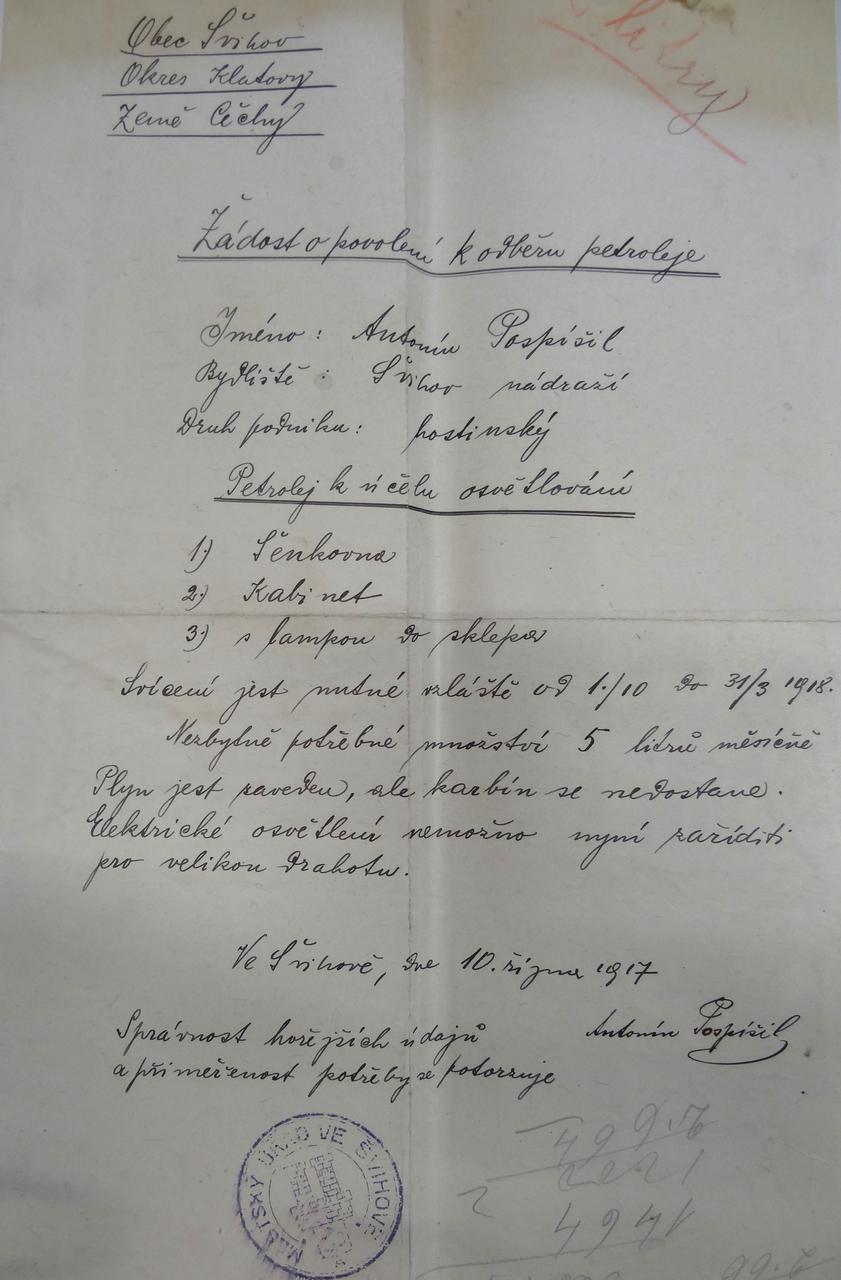 Obec Švihov
Okres Klatovy
Země Čechy
litry
Žádost o povolení k odběru petroleje
Jméno: Antonín Pospíšil
Bydliště: Švihov nádraží
Druh podniku: hostinský
Petrolej k účelu osvětlování
1.) Šenkovna
2.) Kabinet
3.) s lampou do sklepa
Svícení jest nutné vzláště od 1./10 do 31/3 1918.
Nezbytně potřebné množství 5 litrů měsíčně
Plyn jest zaveden, ale karbin se nedostane.
Elektrické osvětlení nemožno nyní zaříditi
pro velikou drahotu.
Ve Švihově, dne 10. října 1917
Antonín Pospíšil
Správnost hořejších údajů
a přiměřenost potřeby se potvrzuje
MĚSTSKÝ ÚŘAD VE ŠVIHOVĚ